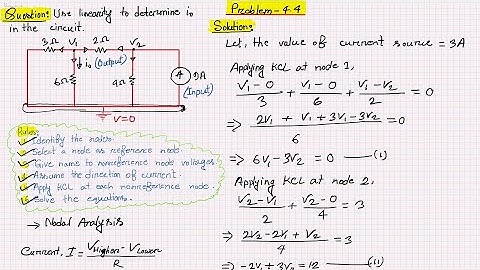 Question: Use linearity to determine i₀
in the circuit.
3Ω V₁ 2Ω V₂
i₀ (Output)
6Ω 4Ω 9A
(Input)
V=0
Rules:
Identify the nodes
Select a node as reference node
Give name to nonreference node voltages
Assume the direction of current.
Apply KCL at each nonreference node.
Solve the equations.
→ Nodal Analysis
Current, I = (V_Higher - V_Lower)/R
Problem-4.4
Solution:
Let, the value of current source = 3A
Applying KCL at node 1,
(V₁-0)/3 + (V₁-0)/6 + (V₁-V₂)/2 = 0
⇒ (2V₁ + V₁ + 3V₁ - 3V₂)/6 = 0
⇒ 6V₁ - 3V₂ = 0 —(1)
Applying KCL at node 2,
(V₂-V₁)/2 + (V₂-0)/4 = 3
⇒ (2V₂ - 2V₁ + V₂)/4 = 3
⇒ -2V₁ + 3V₂ = 12 —(1)